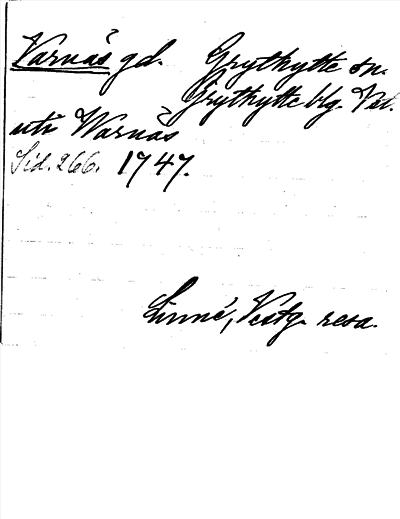 Varnås gd. Grythytte sn.
Grythytte blg. Vstl.
uti Warnås
Sid. 266. 1747.
Linné, Vestg. resa.